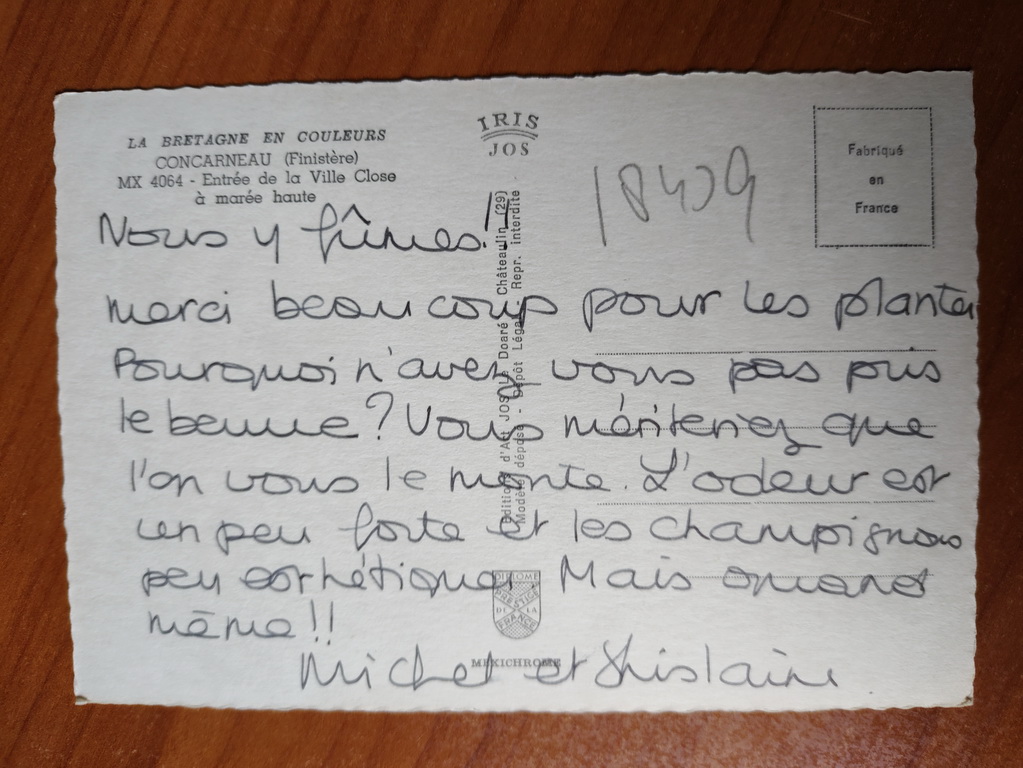 LA BRETAGNE EN COULEURS
CONCARNEAU (Finistère)
MX 4064 - Entrée de la Ville Close
à marée haute
IRIS
JOS
18409
Fabriqué
en
France
Editions d'Art JOS Le Doaré - Châteaulin (29)
Modèle déposé - Dépôt Légal - Repr. interdite
Nous y fûmes !
merci beaucoup pour les plantes
Pourquoi n'avez vous pas pris
le beurre ? Vous mériteriez que
l'on vous le monte. L'odeur est
un peu forte et les champignons
peu esthétiques. Mais quand
même !!
Michel et Ghislaine
DIPLOME
PRESTIGE
DE LA
FRANCE
MEXICHROME